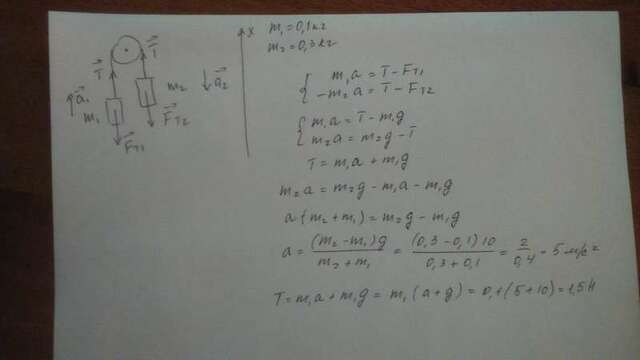 T⃗
T⃗
a⃗₁
m₁
m₂
a⃗₂
F⃗т₁
F⃗т₂
x
m₁ = 0,1 кг
m₂ = 0,3 кг
{ m₁a = T - Fт₁
-m₂a = T - Fт₂
{ m₁a = T - m₁g
m₂a = m₂g - T
T = m₁a + m₁g
m₂a = m₂g - m₁a - m₁g
a(m₂ + m₁) = m₂g - m₁g
a = (m₂ - m₁)g / m₂ + m₁ = (0,3 - 0,1)10 / 0,3 + 0,1 = 2 / 0,4 = 5 м/с²
T = m₁a + m₁g = m₁(a + g) = 0,1(5 + 10) = 1,5 Н